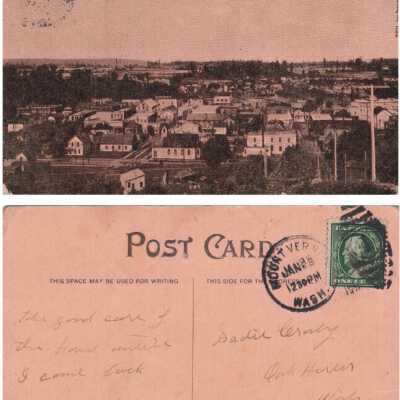 POST CARD
THIS SPACE MAY BE USED FOR WRITING
THIS SIDE FOR THE
MOUNT VERN
JAN 28
12 30 PM
WASH.
the good care of
the house until
I come back
Sadie Crosby
Oak Harbor
Wash